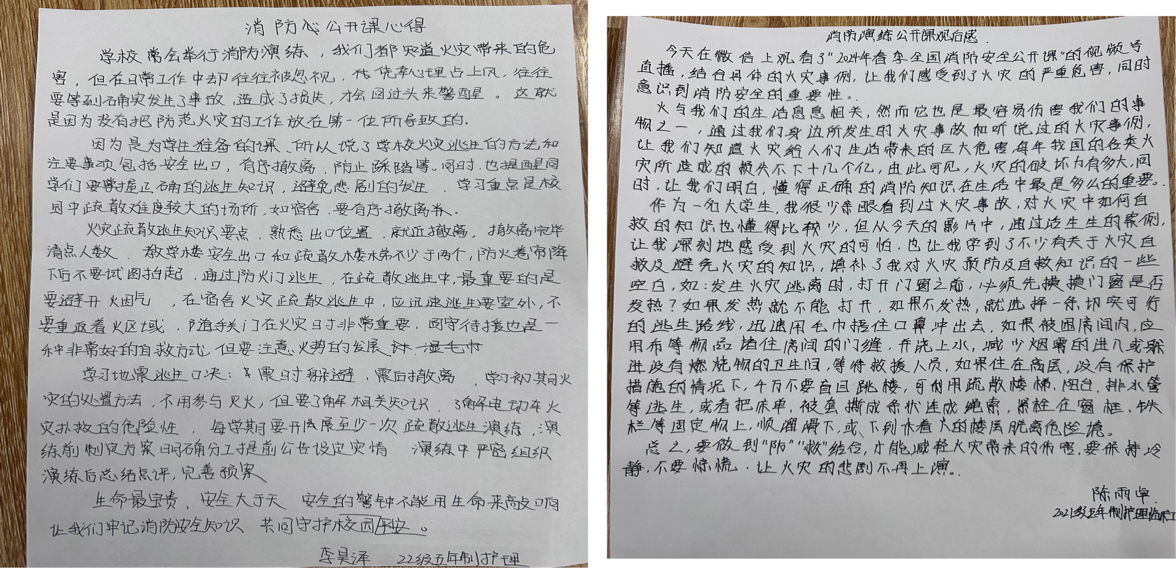 消防公开课心得
学校常会举行消防演练，我们都知道火灾带来的危
害，但在日常工作中却往往被忽视，侥幸心理占上风，往往
要等到确实发生了事故，造成了损失，才会回过头来警醒。这就
是因为没有把防范火灾的工作放在第一位所导致的。
因为是为学生准备的课，所以说了学校火灾逃生的方法和
注要事项包括安全出口，有序撤离，防止踩踏等。同时，也提醒同
学们要掌握正确的逃生知识，避免悲剧的发生。学习重点是校
园中疏散难度较大的场所，如宿舍，要有序撤离来。
火灾疏散逃生知识要点，熟悉出口位置，就近撤离，撤离完毕
清点人数，教学楼安全出口和疏散楼梯不少于两个，防火卷帘降
下后不要试图抬起，通过防火门逃生，在疏散逃生中，最重要的是
要避开烟气，在宿舍火灾疏散逃生中，应迅速逃生要室外，不
要重返着火区域，随手关门在火灾时非常重要，固守待援也是一
种非常好的自救方式，但要注意火势的发展，
学习地震逃生口诀：震时躲避，震后撤离，学习初期火
灾的处置方法，不用参与灭火，但要了解相关知识，了解电动车火
灾扑救的危险性，每学期要开展至少一次疏散逃生演练，演
练前制定方案明确分工提前公告设定灾情 演练中严密组织
演练后总结点评，完善预案
生命最宝贵、安全大于天 安全的警钟不能用生命来敲响
让我们牢记消防安全知识 共同守护校园平安。
李昊泽 22级五年制护理
消防演练公开课观后感.
今天在微信上观看了“2024年春季全国消防安全公开课”的视频号
直播，结合具体的火灾事例，让我们感受到了火灾的严重危害，同时
意识到消防安全的重要性。
火与我们的生活息息相关，然而它也是最容易伤害我们的事
物之一，通过我们身边所发生的火灾事故和听说过的火灾事例，
让我们知道火灾给人们生活带来的巨大危害，每年我国的各类火
灾所造成的损失不下十几个亿，由此可见，火灾的破坏力有多大，同
时，让我们明白，懂得正确的消防知识在生活中最是多么的重要。
作为一位大学生，我很少亲眼看到过火灾事故，对火灾中如何自
救的知识也懂得比较少，但从今天的影片中，通过活生生的案例，
让我深刻地感受到火灾的可怕，也让我学到了不少有关于火灾自
救及避免火灾的知识，填补了我对火灾预防及自救知识的一些
空白，如：发生火灾逃离时，打开门窗之前，必须先摸摸门窗是否
发热？如果发热就不能打开，如果不发热，就选择一条切实可行
的逃生路线，迅速用毛巾捂住口鼻冲出去，如果被困房间内，应
用布等物品堵住房间的门缝，并浇上水，减少烟雾的进入或躲
进没有燃烧物的卫生间，等待救援人员，如果住在高层，没有保护
措施的情况下，千万不要盲目跳楼，可利用疏散楼梯，阳台，排水管
等逃生，或者把床单，被套撕成条状连成绳索，紧栓在窗框，铁
栏等固定物上，顺绳滑下，或下到未着火的楼层脱离危险境。
总之，要做到“防”“救”结合，才能减轻火灾带来的伤害，要保持冷
静，不要惊慌，让火灾的悲剧不再上演。
陈雨卓
2021级五年制护理临床工